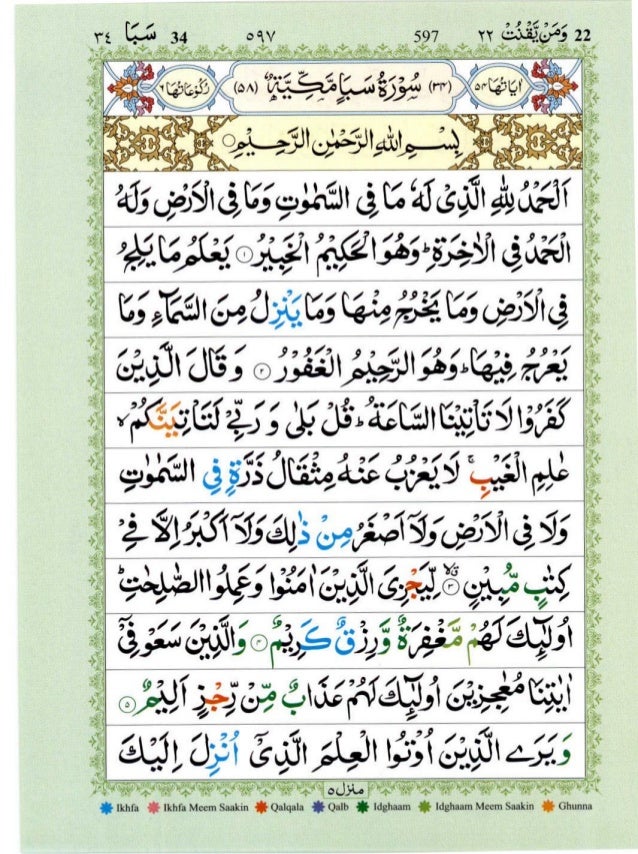 ٣٤ سَبَا 34 ٥٩٧ 597 وَمَنْ يَّقْنُتْ ٢٢ 22
اٰيَاتُهَا ٥٤ (٣٤) سُوْرَةُ سَبَاٍ مَّكِّيَّةٌ (٥٨) رُكُوْعَاتُهَا ٦
بِسْمِ اللّٰهِ الرَّحْمٰنِ الرَّحِيْمِ
اَلْحَمْدُ لِلّٰهِ الَّذِىْ لَهٗ مَا فِى السَّمٰوٰتِ وَمَا فِى الْاَرْضِ وَلَهُ
الْحَمْدُ فِى الْاٰخِرَةِ ؕ وَهُوَ الْحَكِيْمُ الْخَبِيْرُ ۝۱ يَعْلَمُ مَا يَلِجُ
فِى الْاَرْضِ وَمَا يَخْرُجُ مِنْهَا وَمَا يَنْزِلُ مِنَ السَّمَآءِ وَمَا
يَعْرُجُ فِيْهَا ؕ وَهُوَ الرَّحِيْمُ الْغَفُوْرُ ۝۲ وَقَالَ الَّذِيْنَ
كَفَرُوْا لَا تَاْتِيْنَا السَّاعَةُ ؕ قُلْ بَلٰى وَرَبِّىْ لَتَاْتِيَنَّكُمْ ۙ
عٰلِمِ الْغَيْبِ ۚ لَا يَعْزُبُ عَنْهُ مِثْقَالُ ذَرَّةٍ فِى السَّمٰوٰتِ
وَلَا فِى الْاَرْضِ وَلَاۤ اَصْغَرُ مِنْ ذٰلِكَ وَلَاۤ اَكْبَرُ اِلَّا فِىْ
كِتٰبٍ مُّبِيْنٍ ۝۳ لِّيَجْزِىَ الَّذِيْنَ اٰمَنُوْا وَعَمِلُوا الصّٰلِحٰتِ ؕ
اُولٰٓئِكَ لَهُمْ مَّغْفِرَةٌ وَّرِزْقٌ كَرِيْمٌ ۝۴ وَالَّذِيْنَ سَعَوْ فِىْۤ
اٰيٰتِنَا مُعٰجِزِيْنَ اُولٰٓئِكَ لَهُمْ عَذَابٌ مِّنْ رِّجْزٍ اَلِيْمٌ ۝۵
وَيَرَى الَّذِيْنَ اُوْتُوا الْعِلْمَ الَّذِىْۤ اُنْزِلَ اِلَيْكَ
منزل ٥
Ikhfa Ikhfa Meem Saakin Qalqala Qalb Idghaam Idghaam Meem Saakin Ghunna